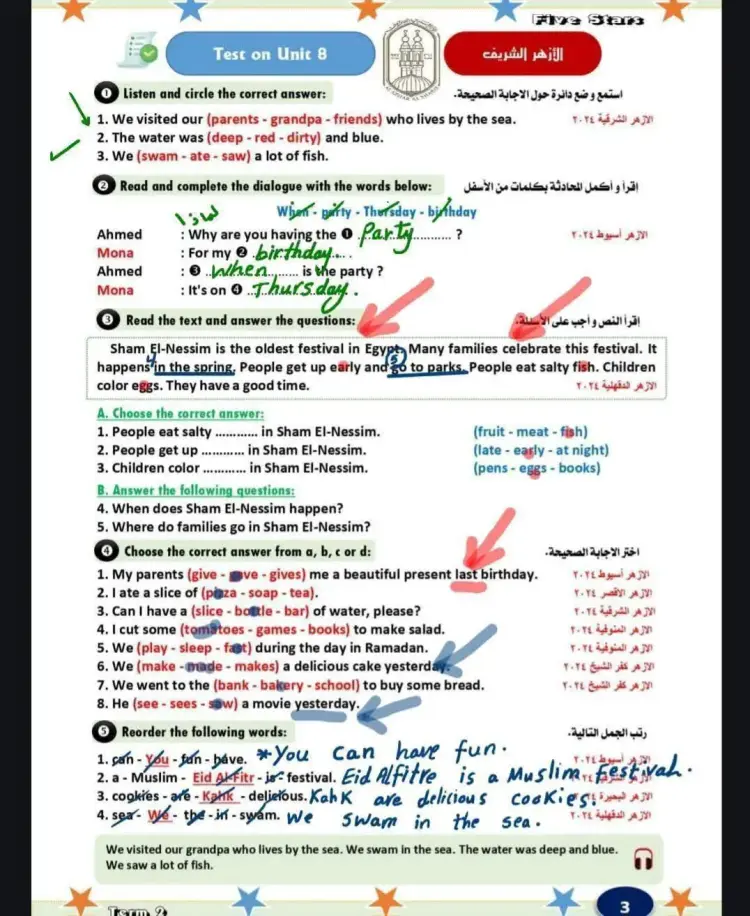 Five Stars
Test on Unit 8
الأزهر الشريف
❶ Listen and circle the correct answer: استمع و ضع دائرة حول الاجابة الصحيحة.
1. We visited our (parents - grandpa - friends) who lives by the sea. الازهر الشرقية ٢٠٢٤
2. The water was (deep - red - dirty) and blue.
3. We (swam - ate - saw) a lot of fish.
❷ Read and complete the dialogue with the words below: إقرا و أكمل المحادثة بكلمات من الأسفل
When - party - Thursday - birthday
لماذا
Ahmed : Why are you having the ❶ ..Party............ ? الازهر أسيوط ٢٠٢٤
Mona : For my ❷ birthday....
Ahmed : ❸ ..When......... is the party ?
Mona : It's on ❹ ..Thursday.
❸ Read the text and answer the questions: إقرا النص و أجب على الأسئلة.
Sham El-Nessim is the oldest festival in Egypt. Many families celebrate this festival. It
4 5
happens in the spring. People get up early and go to parks. People eat salty fish. Children
color eggs. They have a good time. الازهر الدقهلية ٢٠٢٤
A. Choose the correct answer:
1. People eat salty ............ in Sham El-Nessim. (fruit - meat - fish)
2. People get up ............ in Sham El-Nessim. (late - early - at night)
3. Children color ............ in Sham El-Nessim. (pens - eggs - books)
B. Answer the following questions:
4. When does Sham El-Nessim happen?
5. Where do families go in Sham El-Nessim?
❹ Choose the correct answer from a, b, c or d: اختر الاجابة الصحيحة.
1. My parents (give - gave - gives) me a beautiful present last birthday. الازهر أسيوط ٢٠٢٤
2. I ate a slice of (pizza - soap - tea). الازهر الاقصر ٢٠٢٤
3. Can I have a (slice - bottle - bar) of water, please? الازهر الشرقية ٢٠٢٤
4. I cut some (tomatoes - games - books) to make salad. الازهر المنوفية ٢٠٢٤
5. We (play - sleep - fast) during the day in Ramadan. الازهر المنوفية ٢٠٢٤
6. We (make - made - makes) a delicious cake yesterday. الازهر كفر الشيخ ٢٠٢٤
7. We went to the (bank - bakery - school) to buy some bread. الازهر كفر الشيخ ٢٠٢٤
8. He (see - sees - saw) a movie yesterday.
❺ Reorder the following words: رتب الجمل التالية.
1. can - You - fun - have. *You can have fun. الازهر أسيوط ٢٠٢٤
2. a - Muslim - Eid Al-Fitr - is - festival. Eid Alfitre is a Muslim Festivah.
3. cookies - are - Kahk - delicious. Kahk are delicious cookies. الازهر البحيرة ٢٠٢٤
4. sea - We - the - in - swam. We swam in the sea. الازهر الدقهلية ٢٠٢٤
We visited our grandpa who lives by the sea. We swam in the sea. The water was deep and blue.
We saw a lot of fish.
Term 2
3